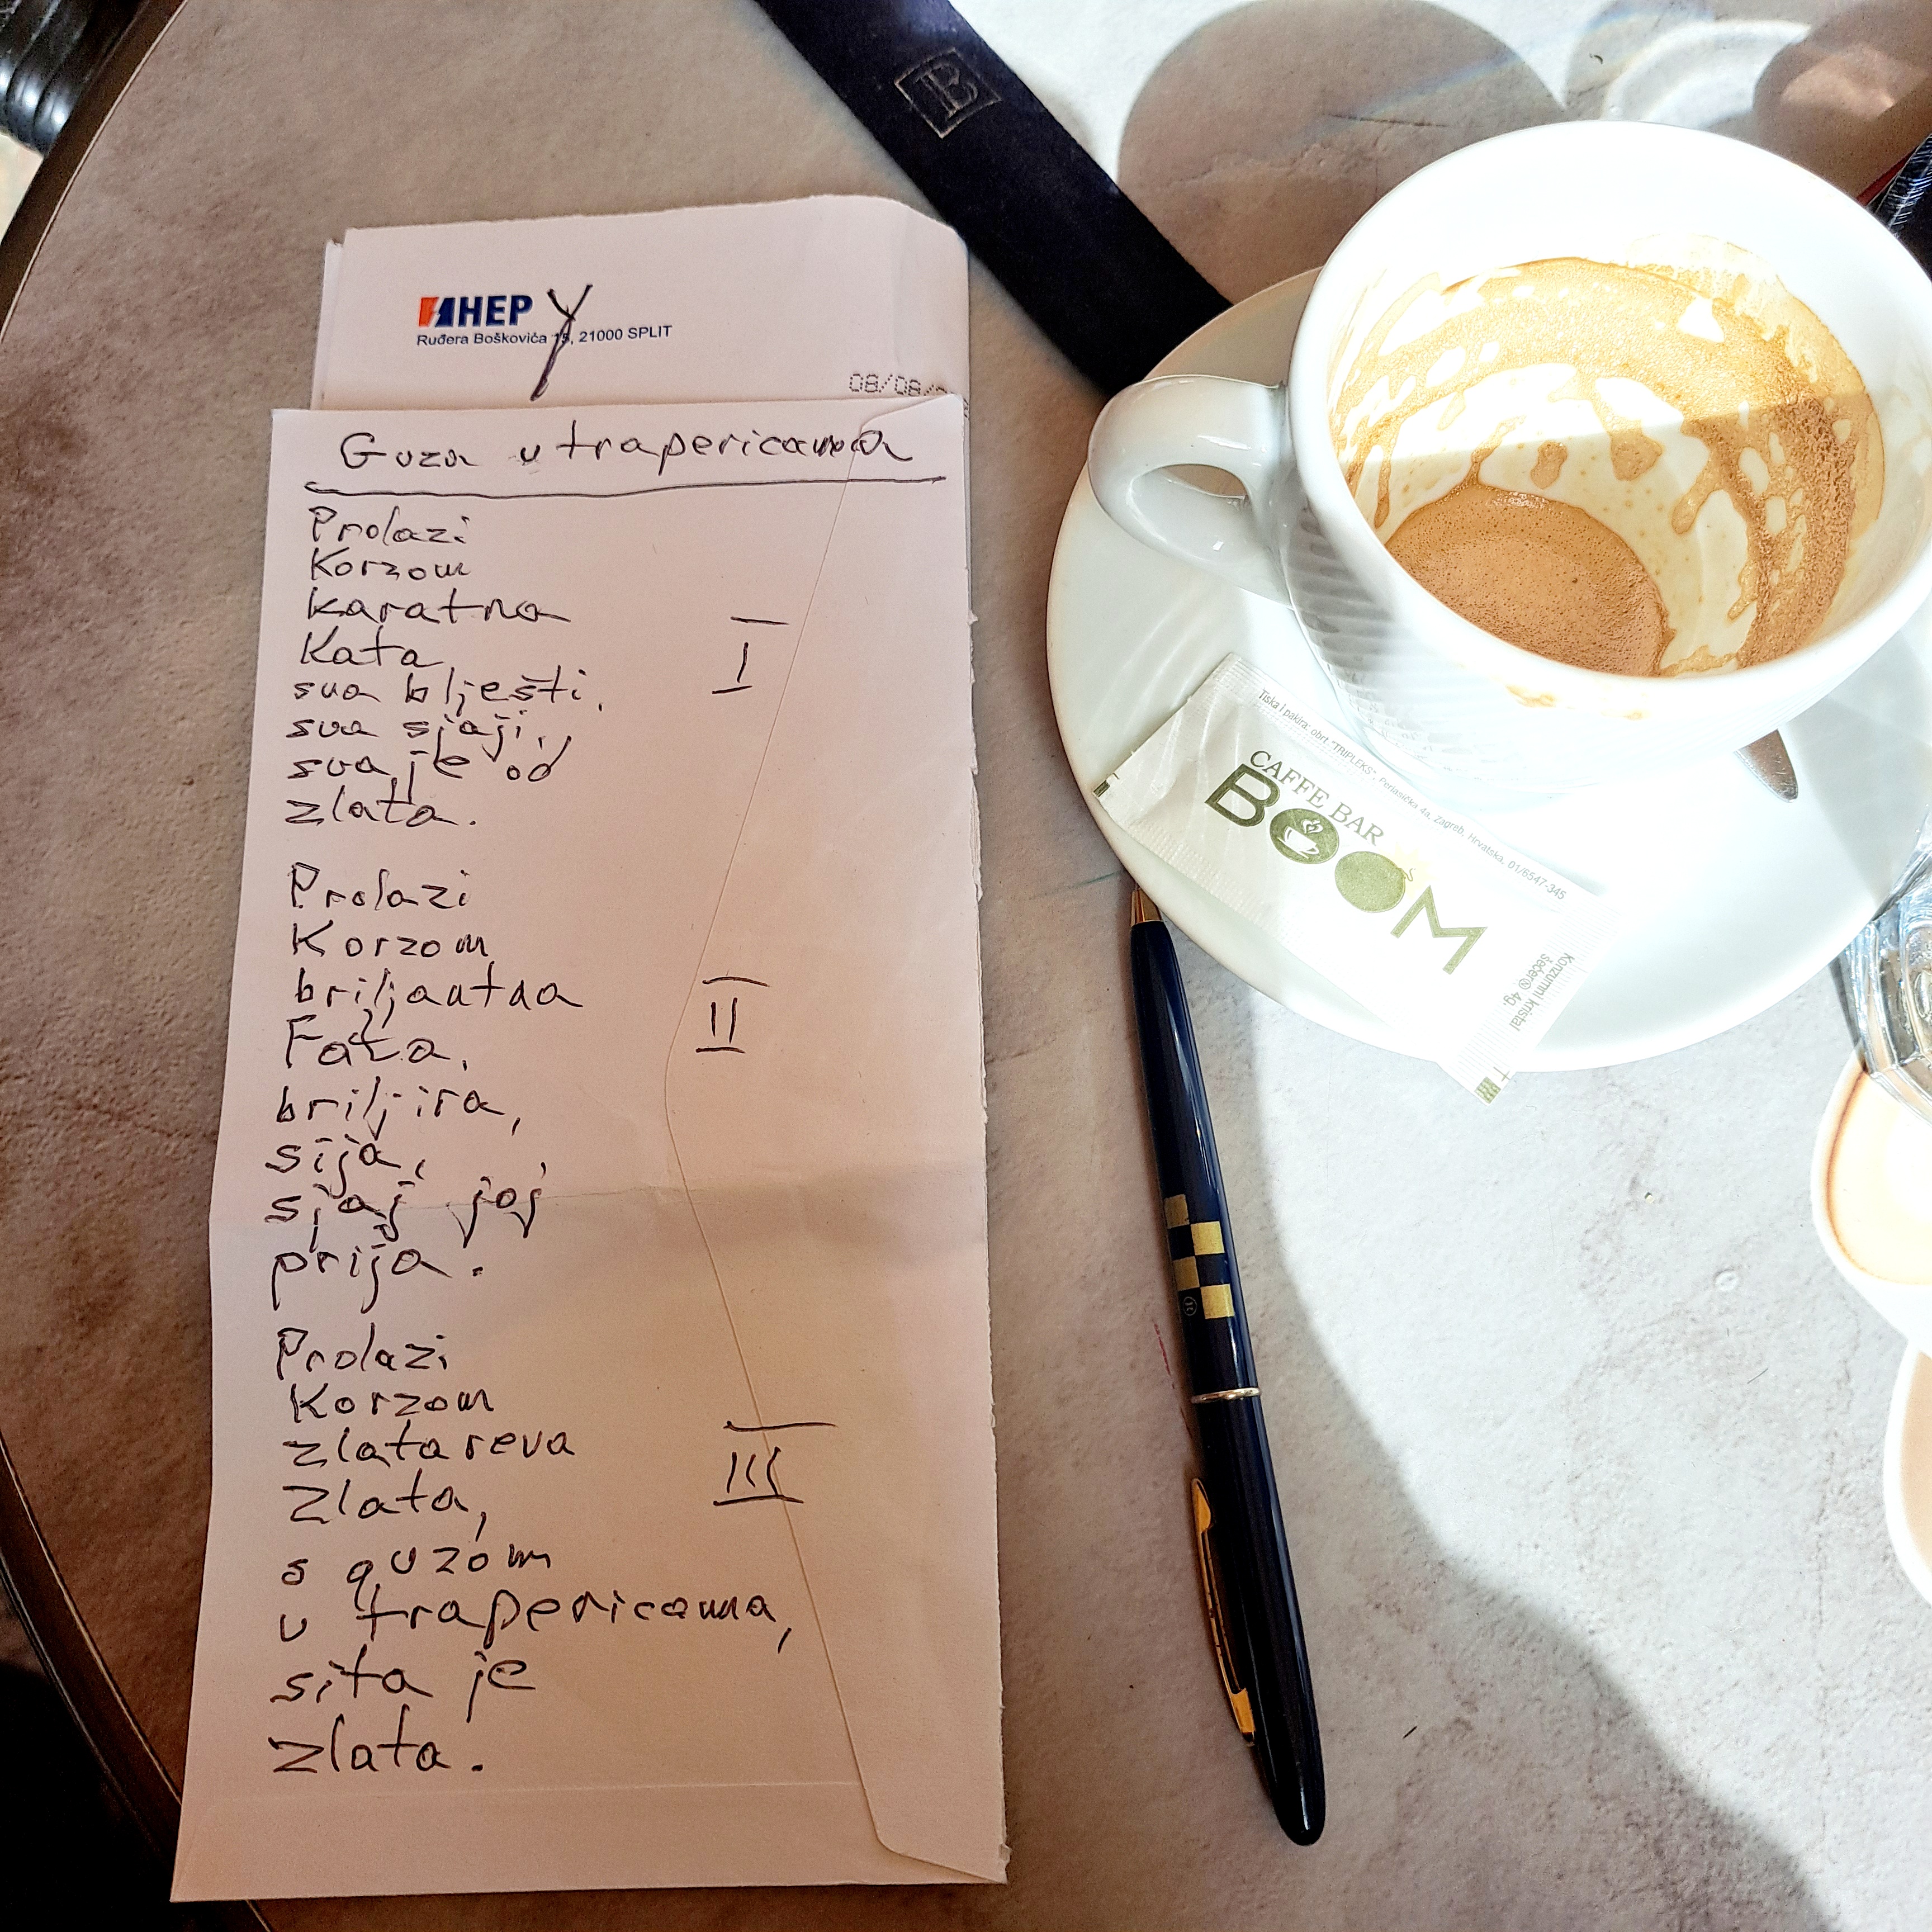 HEP
Ruđera Boškovića 15, 21000 SPLIT
08/08/
Guza u trapericama
Prolazi
Korzom
karatna
Kata,
sva blješti,
sva sjaji,
sva je od
zlata.
I
Prolazi
Korzom
briljantna
Fata,
briljira,
sija,
sjaj joj
prija.
II
Prolazi
Korzom
zlatareva
Zlata,
s guzom
u trapericama,
sita je
zlata.
III
Tiska i pakira: obrt "TRIPLEKS", Perjasička 4a, Zagreb, Hrvatska, 01/6547-345
CAFFE BAR
BOOM
Konzumni kristal
šećer 4g